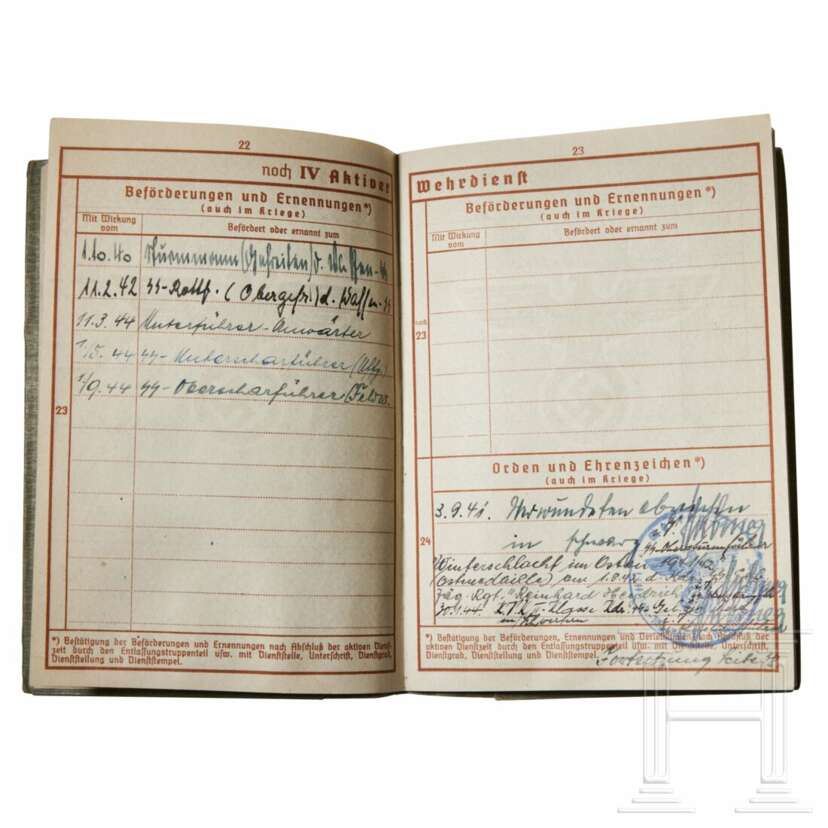 22
noch IV Aktiver
Beförderungen und Ernennungen*)
(auch im Kriege)
Mit Wirkung vom
Befördert oder ernannt zum
1.10.40 Sturmmann (Gefreiter) d. Waffen-SS
11.2.42 SS-Rottf. (Obergefr.) d. Waffen-SS
11.3.44 Unterführer-Anwärter
1/5.44 SS-Unterscharführer (Uffz.)
1/9.44 SS-Oberscharführer (Feldw.
23
*) Bestätigung der Beförderungen und Ernennungen nach Abschluß der aktiven Dienst-
zeit durch den Entlassungstruppenteil usw. mit Dienststelle, Unterschrift, Dienstgrad,
Dienststellung und Dienststempel.
23
Wehrdienst
Beförderungen und Ernennungen*)
(auch im Kriege)
Mit Wirkung vom
Befördert oder ernannt zum
noch
23
Orden und Ehrenzeichen*)
(auch im Kriege)
3.9.41. Verwundeten abzeichen
in schwarz
SS-Obersturmführer
24
Winterschlacht im Osten 1941/42
(Ostmedaille) am
Rgt. "Reinhard Heydrich"
30.1.44 II. Klasse
*) Bestätigung der Beförderungen, Ernennungen und Verleihungen nach Abschluß der
aktiven Dienstzeit durch den Entlassungstruppenteil usw. mit Dienststelle, Unterschrift,
Dienstgrad, Dienststellung und Dienststempel.
Fortsetzung Seite